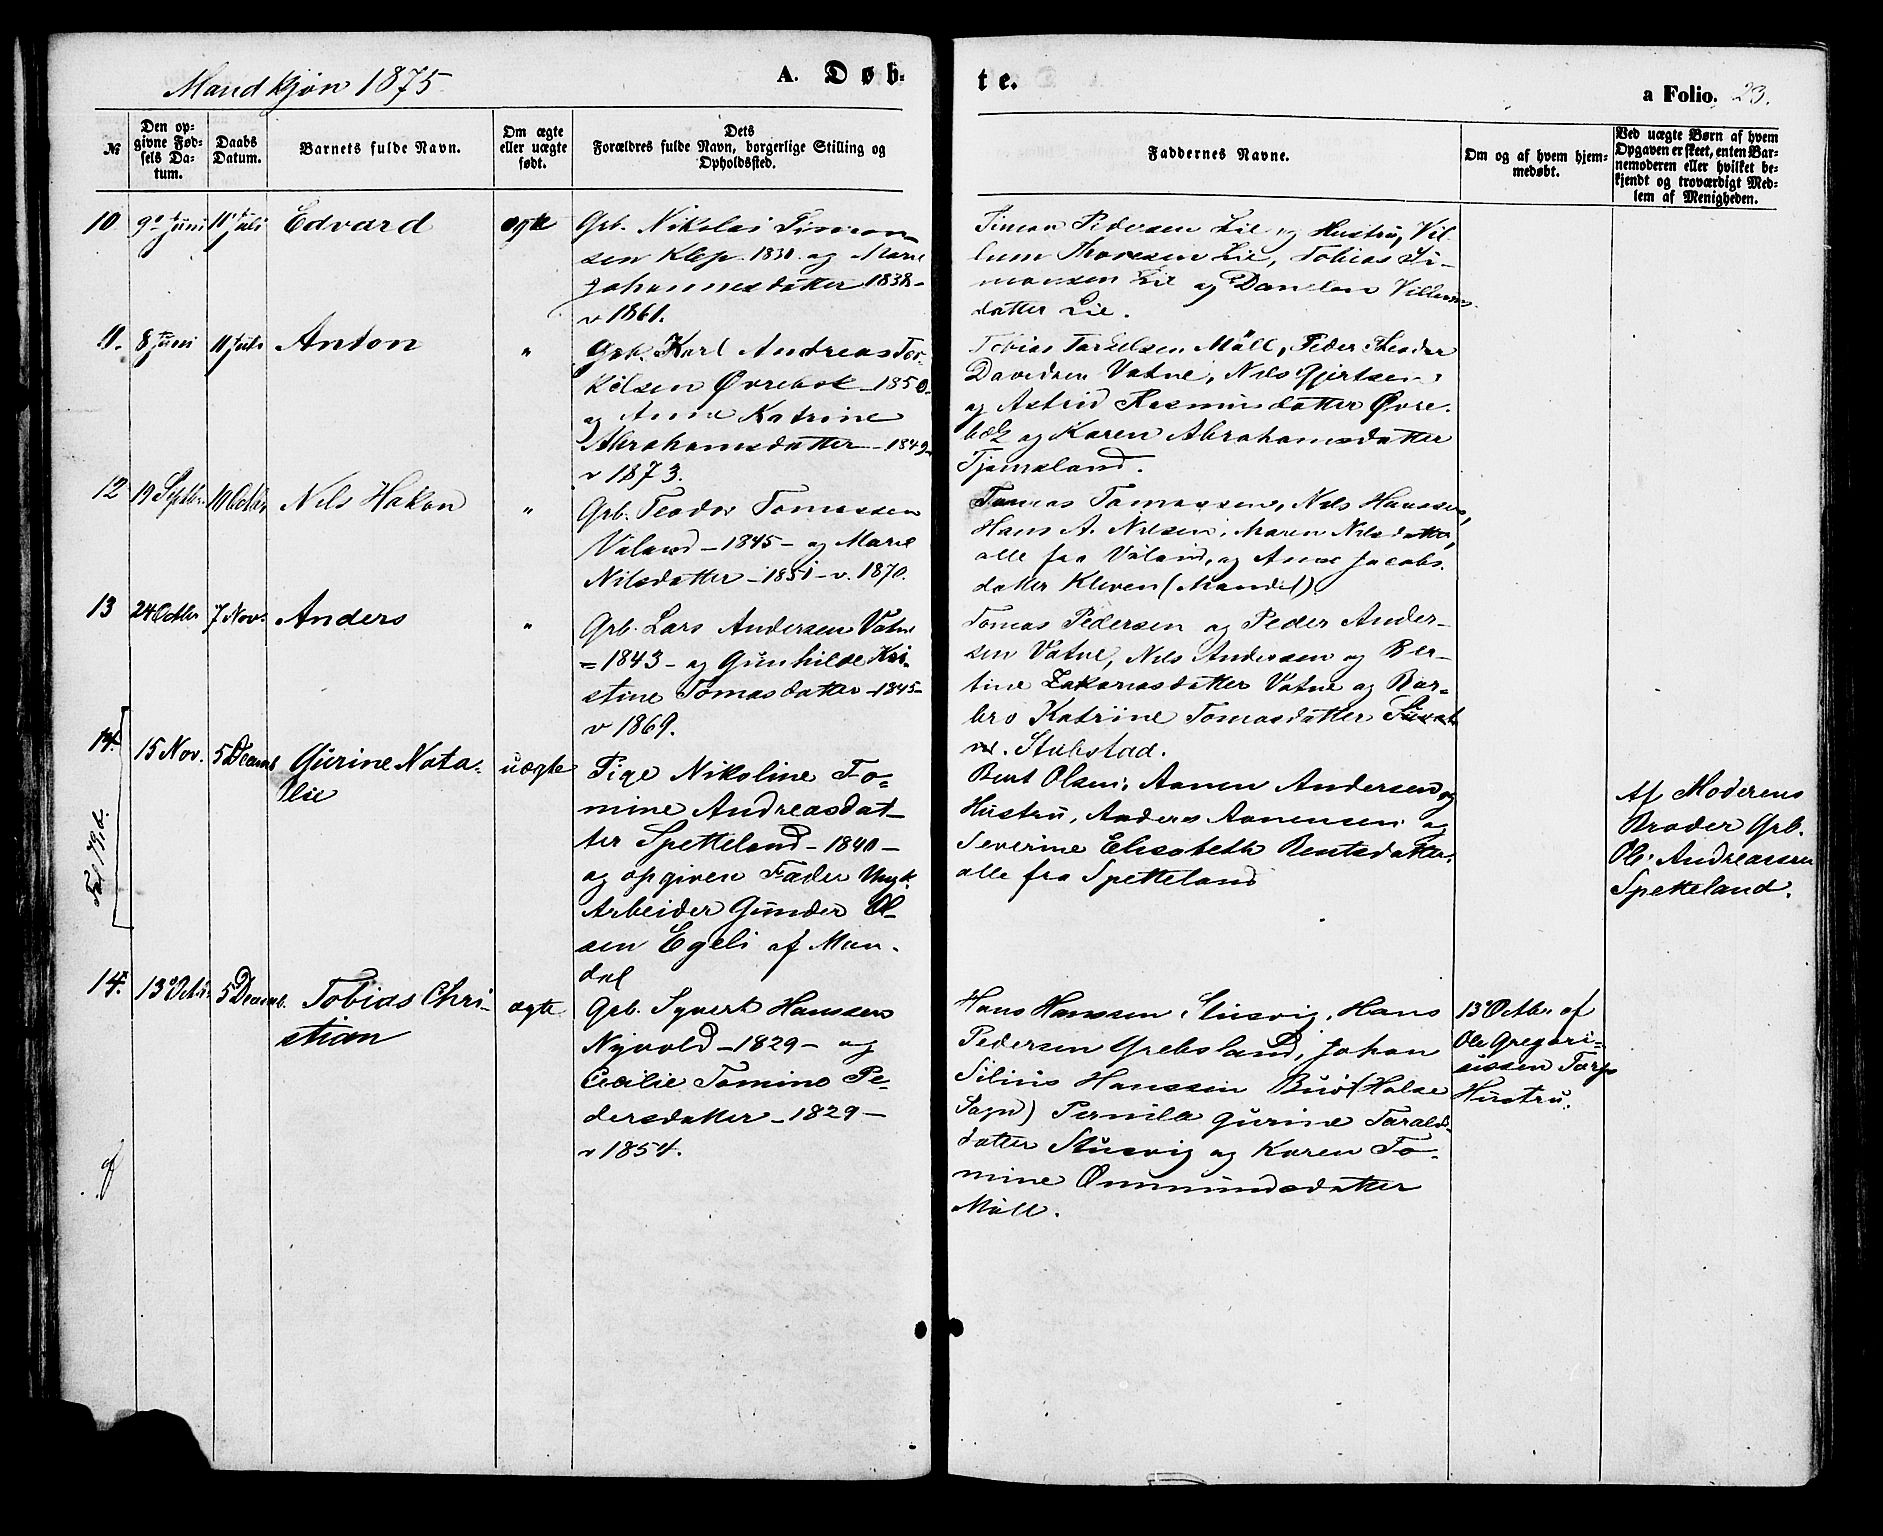 Mandkjøn 1875
A. Døb-
te.
a Folio. 23.
№
Den op-
givne Fød-
sels Da-
tum.
Daabs
Datum.
Barnets fulde Navn.
Om ægte
eller uægte
født.
Dets
Forældres fulde Navn, borgerlige Stilling og
Opholdssted.
Faddernes Navne.
Om og af hvem hjem-
medøbt.
Ved uægte Børn af hvem
Opgaven er skeet, enten Bar-
nemoderen eller hvilket be-
kjendt og troværdigt Med-
lem af Menigheden.
10 9de Juni 11te Juli Edvard ægte
Grb. Nikolai Simon-
sen Klep 1830 og Marie
Johannesdatter 1838-
v 1861.
Simon Pedersen Lie og Hustru, Vil-
lum Lie, Tobias Si-
monsen Lie og Villums
datter Lie.
11. 8 Juni 11 Juli Anton "
Gbk. Karl Andreas Tor-
kelsen Øvrebøk -1850-
og Anne Katrine
Abrahamsdatter -1849-
v 1873.
Tobias Møll, Peder Theodor
Davidsen Vatne, Nils Gjertsen
og Astrid Rasmusdatter Øvre-
bæk og Karen Abrahamsdatter
Tjomsland.
12 19 Septbr. 10 Octbr Nels Hakon "
Grb. Teodor Tomassen
Våland -1845- og Marie
Nilsdatter -1851- v. 1870.
Tomas Tomassen, Nils Hanssen,
Hans A. Nilsen, Maren Nilsdatter,
alle fra Våland, og Anne Jacobs-
datter Kleven (Mandal)
13 24 Octbr 7 Nov. Anders "
Grb. Lars Andersen Vatne
-1843- og Gunhilde Kri-
stine Tomasdatter -1845-
v 1869.
Tomas Pedersen og Peder Ander-
sen Vatne, Nils Andersen og Ber-
tine Zakariasdatter Vatne og Bar-
bro Katrine Tomasdatter
Stubstad.
14. 15 Nov. 5 Decemb Gurine Nata-
lie
uægte
Pige Nikoline To-
mine Andreasdat-
ter Spetteland -1840-
og opgiven Fader Ungk.
Arbeider Gunder Ol-
sen Egeli af Man-
dal
Bent Olsen, Aanen Andersen og
Hustru, Anders Aanensen og
Severine Elisabeth Bentsdatter,
alle fra Spetteland
Af Moderens
Broder Grb.
Ole Andreassen
Spetteland.
14. 13 Octbr 5 Decemb. Tobias Chri-
stian
ægte
Grb. Syvert Hanssen
Nyvold -1829- og
Cecilie Tomine Pe-
dersdatter -1829-
v 1854.
Hans Hanssen Stusvig, Hans
Pedersen Grebsland, Johan
Silius Hanssen Buø (Halse
Sogn) Pernila Gurine Tarald-
datter Stusvig og Karen To-
mine Ommundsdatter
Møll.
13 Octbr. af
Ole Gregori-
ussen Tarps
Hustru.